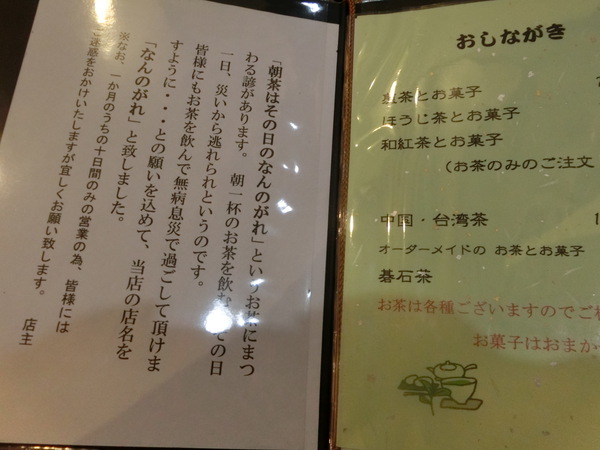 「朝茶はその日のなんのがれ」というお茶にまつ
わる諺があります。 朝一杯のお茶を飲むその日
一日、災いから逃れられというのです。
皆様にもお茶を飲んで無病息災で過ごして頂けま
すように・・・との願いを込めて、当店の店名を
「なんのがれ」と致しました。
※なお、一か月のうちの十日間のみの営業の為、皆様には
ご迷惑をおかけいたしますが宜しくお願い致します。
店主
おしながき
茶とお菓子
ほうじ茶とお菓子
和紅茶とお菓子
(お茶のみのご注文
中国・台湾茶
オーダーメイドの お茶とお菓子
碁石茶
お茶は各種ございますのでご
お菓子はおまか